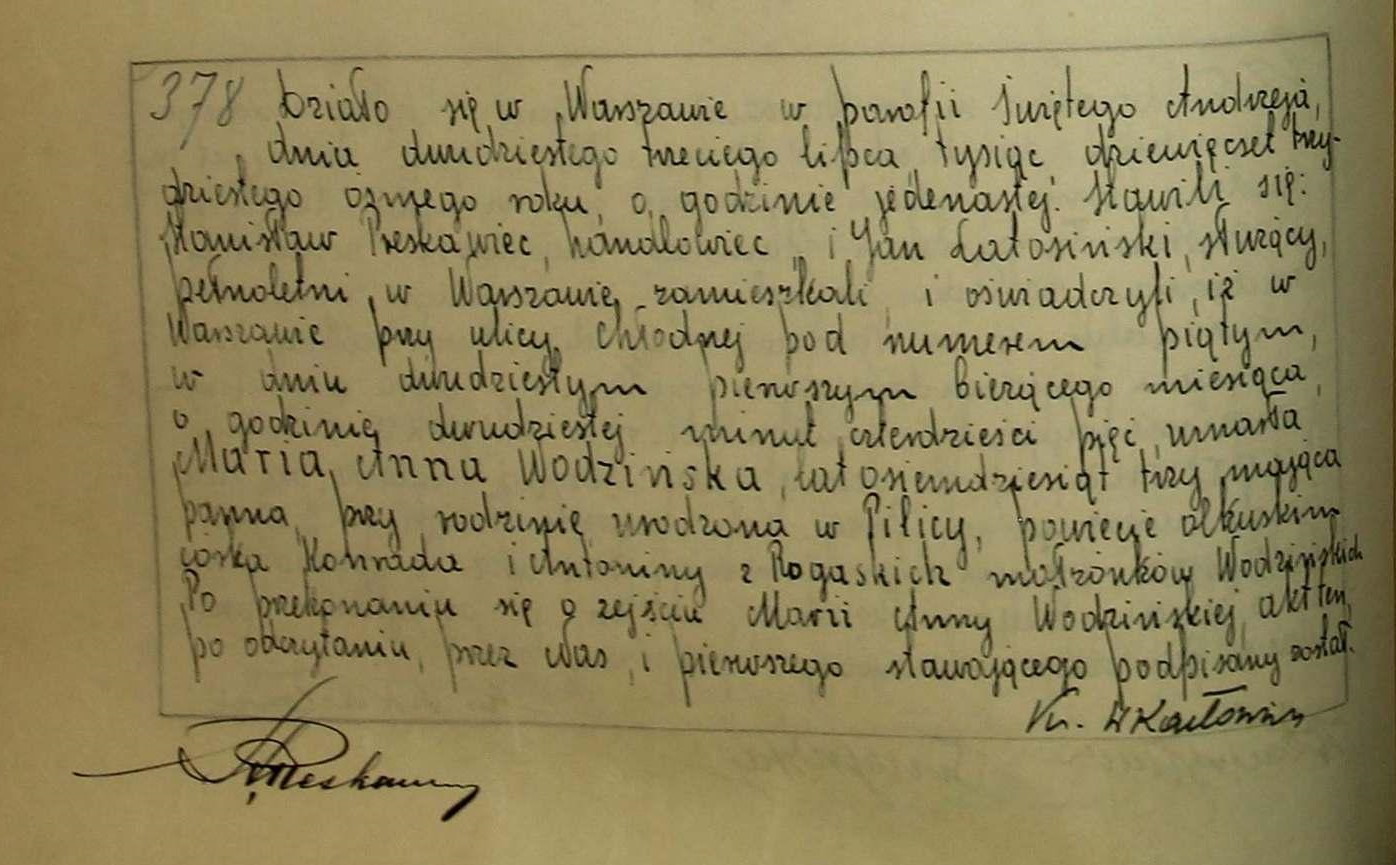 378 Działo się w Warszawie w parafii Świętego Andrzeja,
dnia dwudziestego trzeciego lipca, tysiąc dziewięćset trzy-
dziestego ósmego roku, o godzinie jedenastej. Stawili się:
Stanisław Preskawiec, handlowiec, i Jan Łatosiński, służący,
pełnoletni, w Warszawie zamieszkali, i oświadczyli, iż w
Warszawie przy ulicy Chłodnej pod numerem piątym,
w dniu dwudziestym pierwszym bieżącego miesiąca,
o godzinie dwudziestej minut czterdzieści pięć, umarła
Maria, Anna Wodzińska, lat osiemdziesiąt trzy mająca
panna, przy rodzinie, urodzona w Pilicy, powiecie olkuskim
córka Konrada i Antoniny z Rogaskich małżonków Wodzińskich
Po przekonaniu się o zejściu Marii Anny Wodzińskiej, akt ten,
po odczytaniu, przez Nas, i pierwszego stawającego podpisany został.